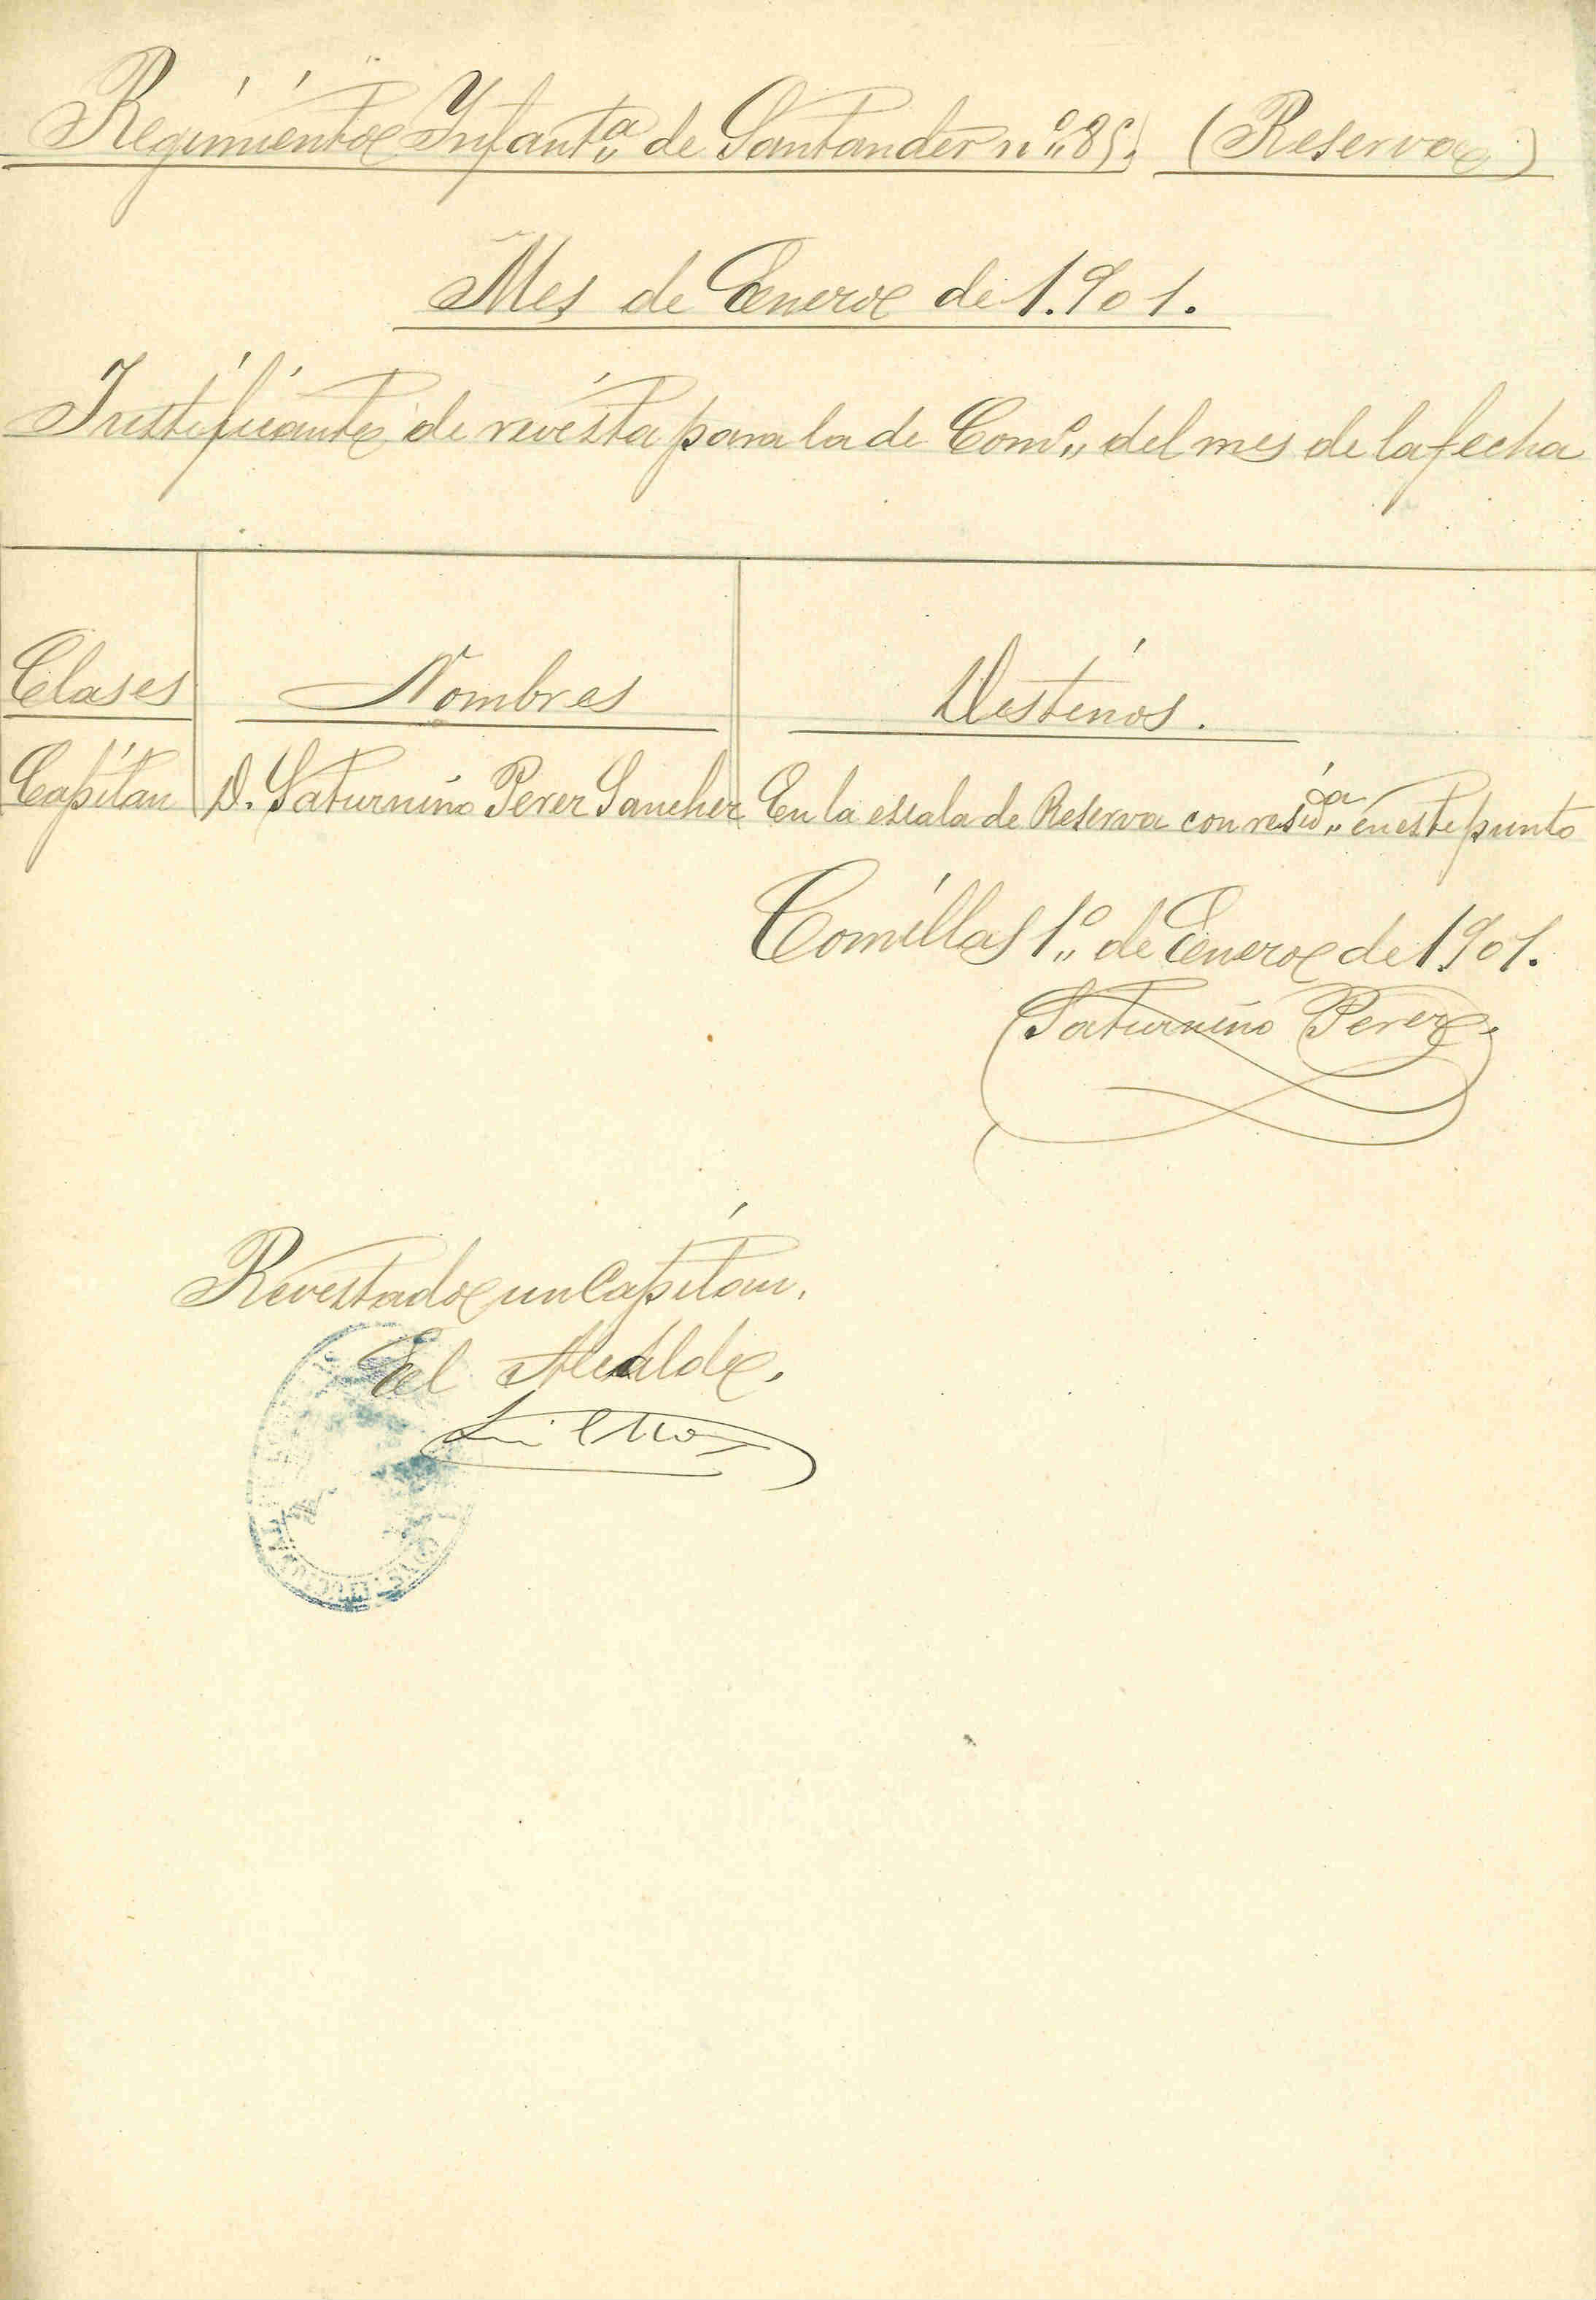 Regimiento Infantª de Santander nº 85. (Reserva)
Mes de Enero de 1.901.
Justificante de revista para la de Comº del mes de la fecha
Clases Nombres Destinos.
Capitan D. Saturnino Perez Sanchez En la escala de Reserva con residª en este punto
Comillas 1º de Enero de 1901.
Saturnino Perez.
Revistado un Capitan.
El Alcalde.